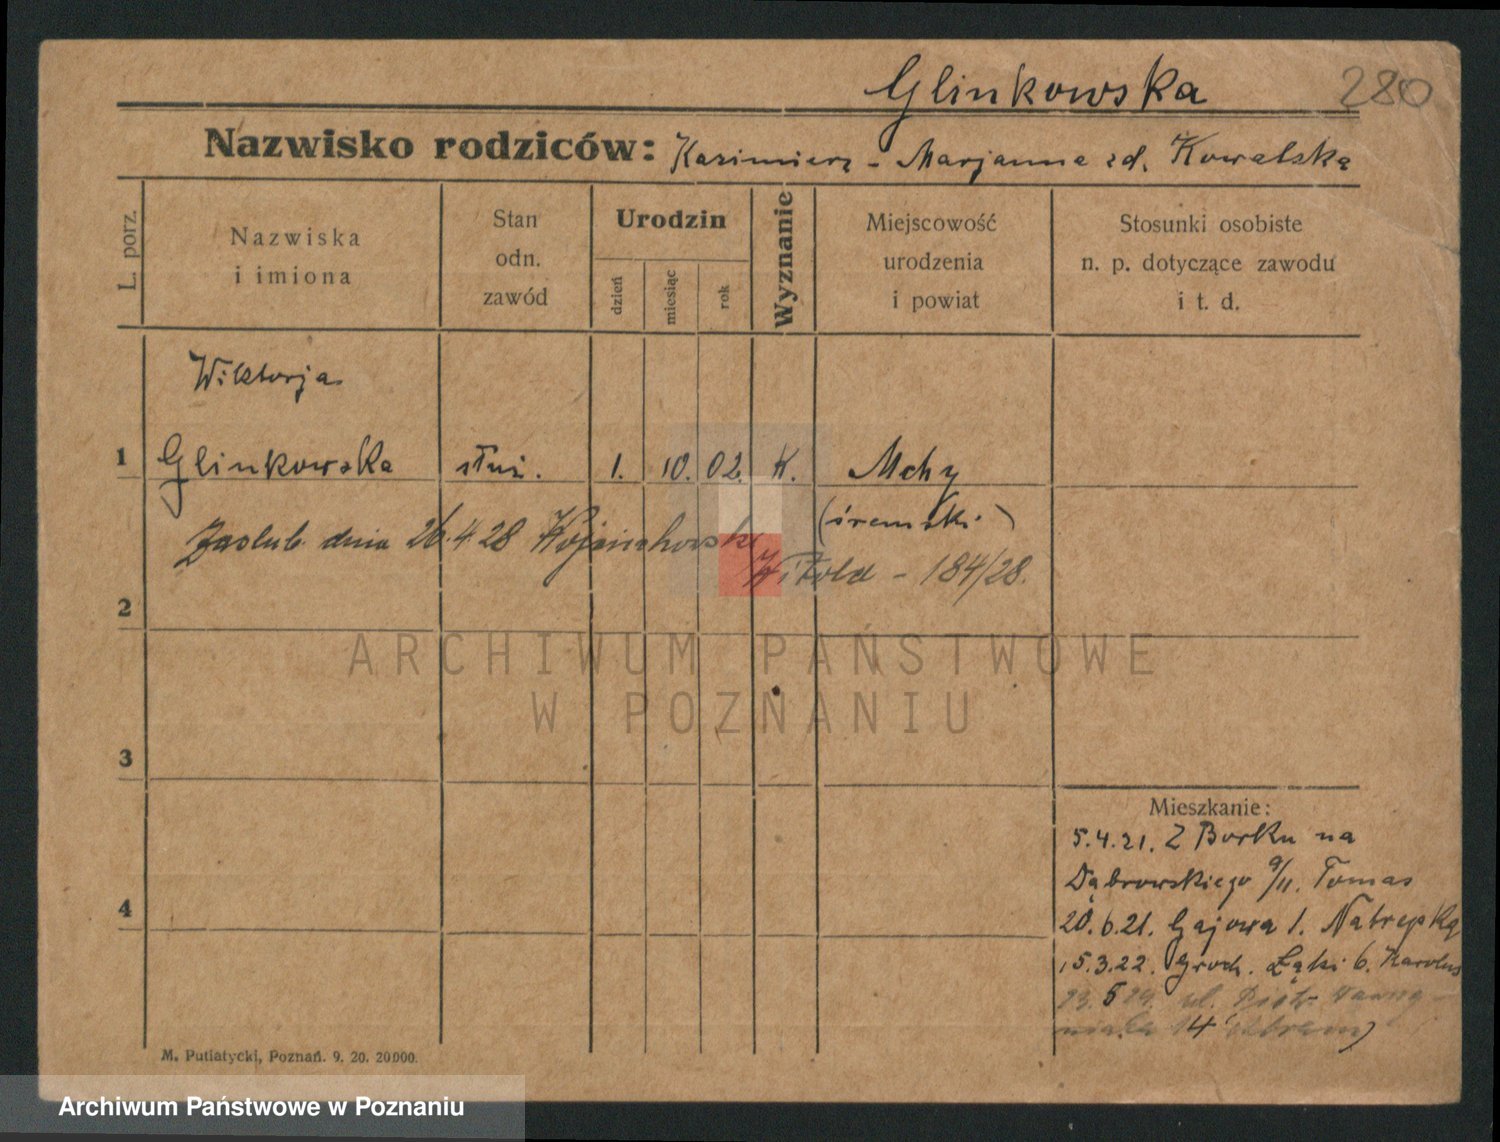 Glinkowska 280
Nazwisko rodziców: Kazimierz - Marjanna zd. Kowalska
L. porz.
Nazwiska
i imiona
Stan
odn.
zawód
Urodzin
dzień
miesiąc
rok
Wyznanie
Miejscowość
urodzenia
i powiat
Stosunki osobiste
n. p. dotyczące zawodu
i t. d.
Wiktorja
1 Glinkowska służ. 1. 10. 02. K. Mchy
(śremski)
Zaslub. dnia 26.4.28
Witold - 184/28.
2
ARCHIWUM PAŃSTWOWE
W POZNANIU
3
Mieszkanie:
5.4.21. Z Borku na
Dąbrowskiego 9/II. Tomas
4
20.6.21. Gajowa 1.
15.3.22. Groch. Łąki 6. Karolus
ul. Piotr
14
M. Putiatycki, Poznań. 9. 20. 20000.
Archiwum Państwowe w Poznaniu